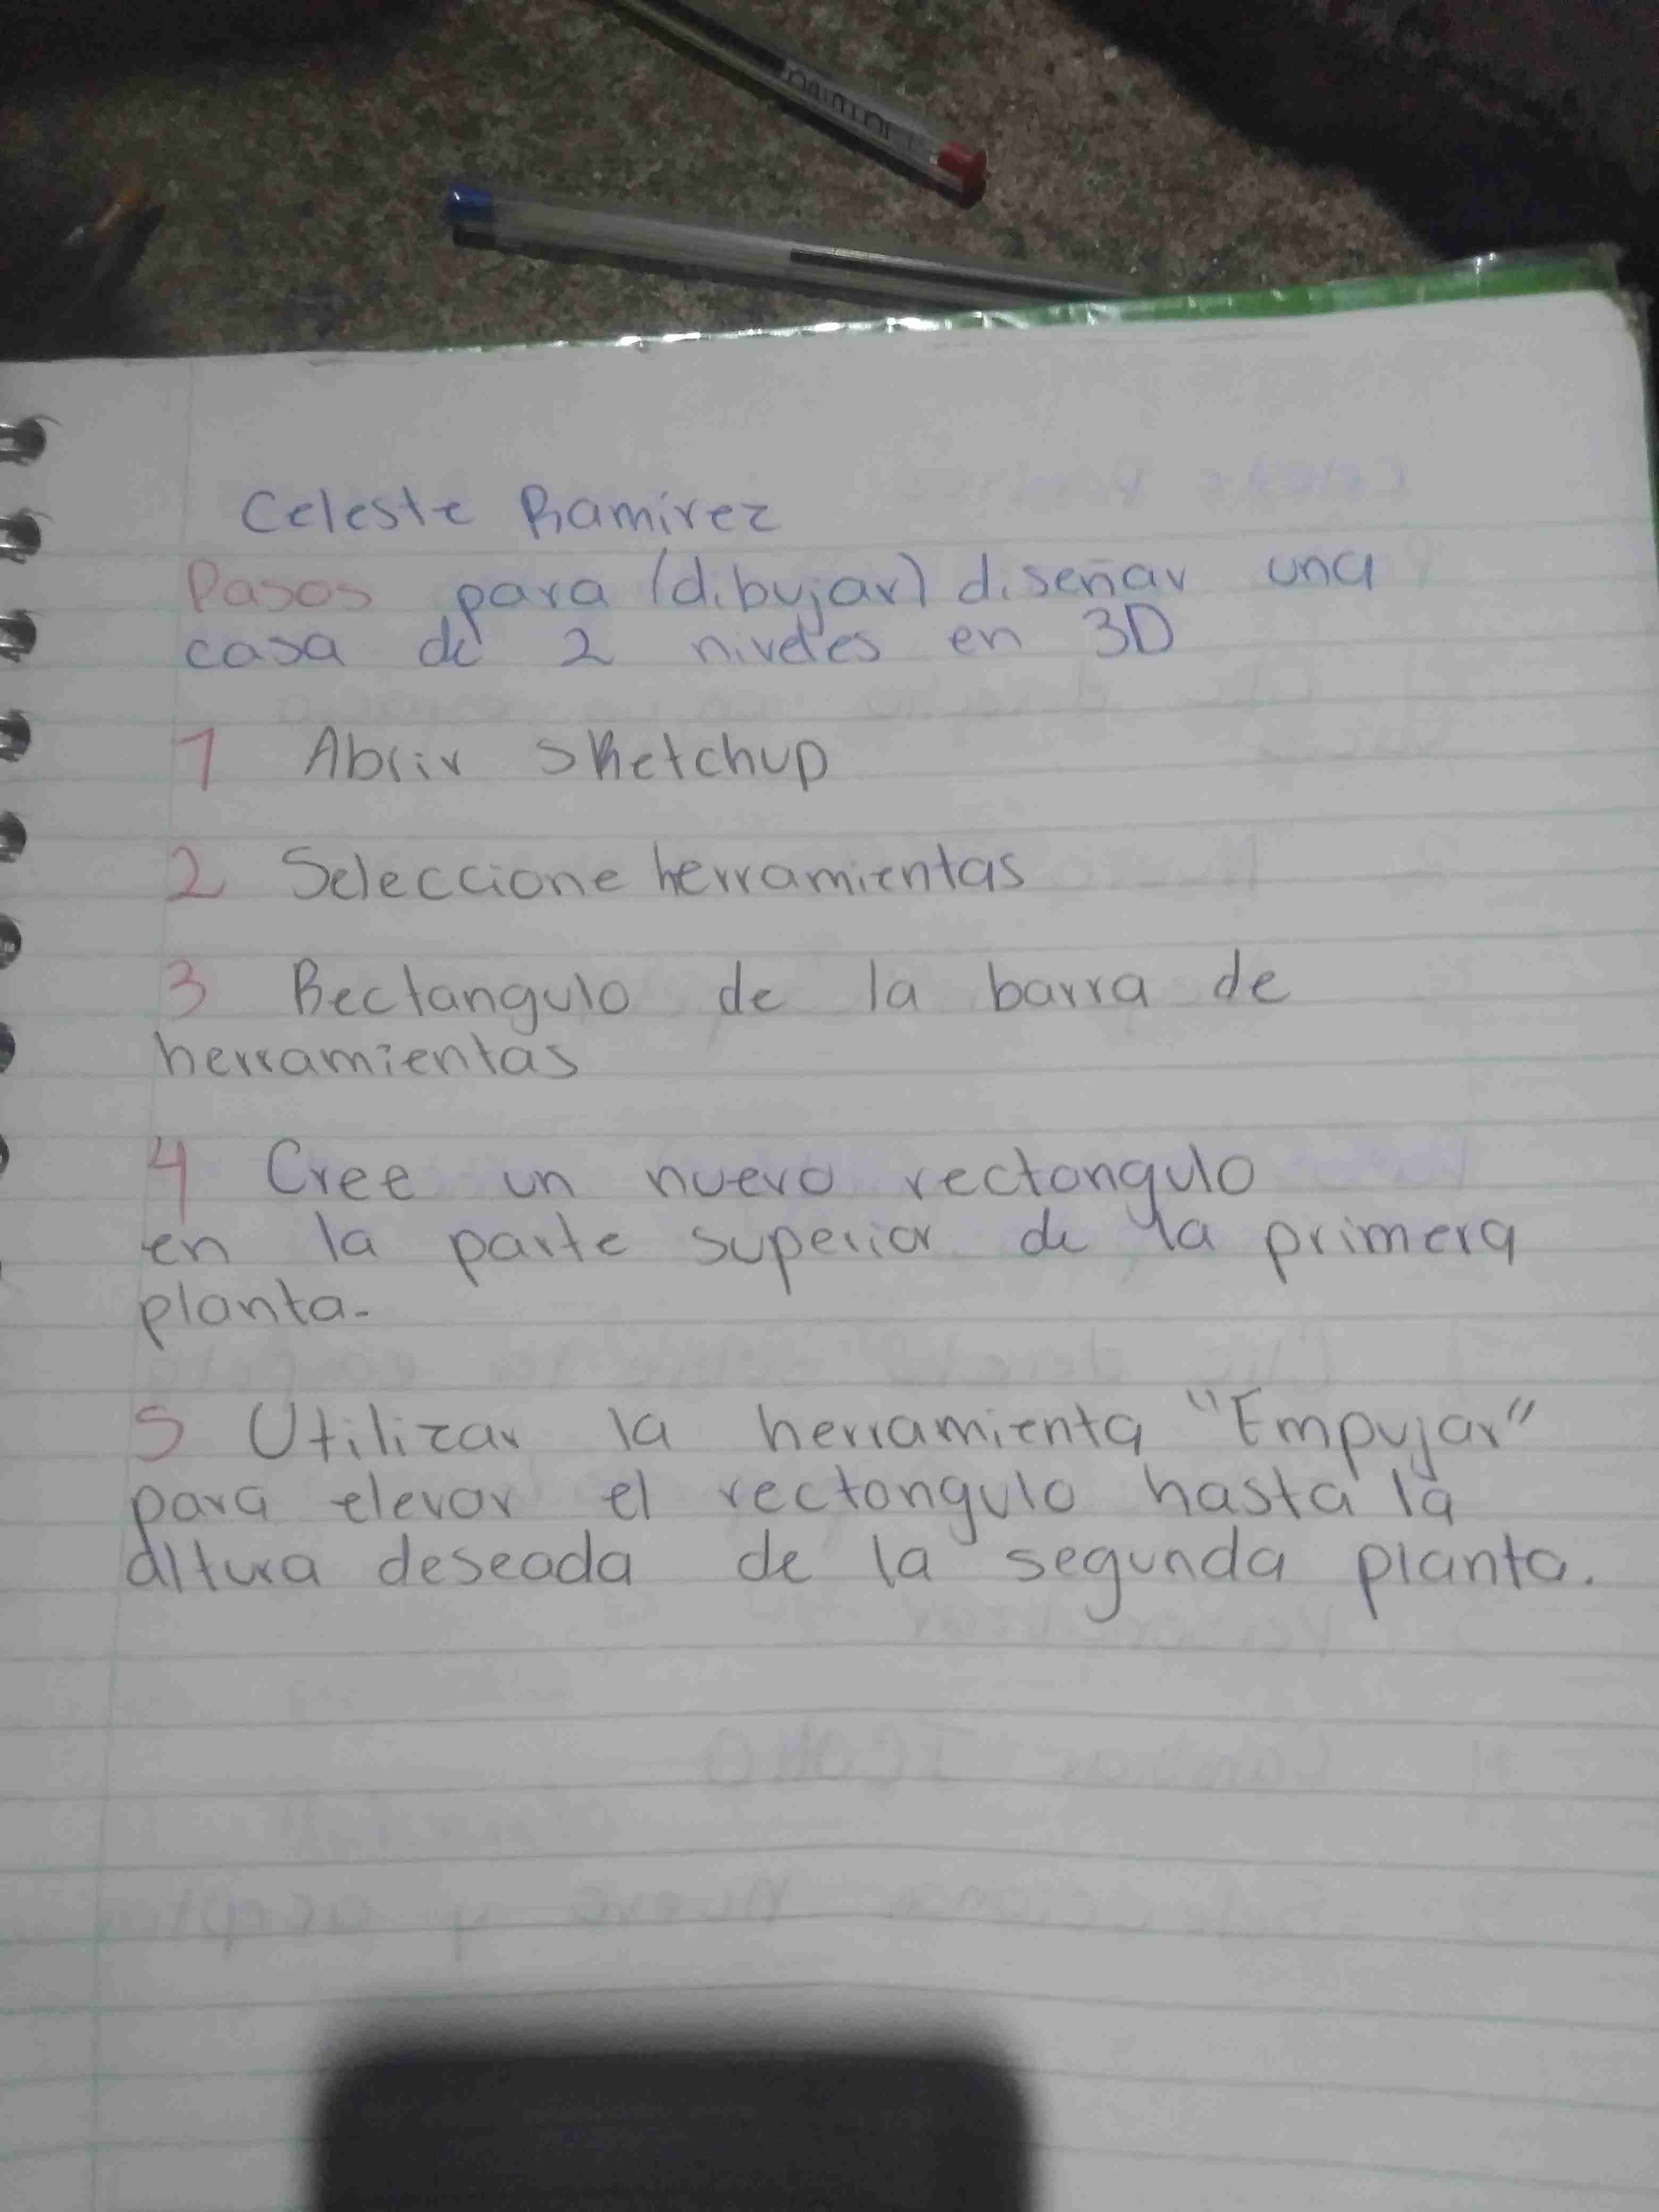 Celeste Ramírez
Pasos para (dibujar) diseñar una
casa de 2 niveles en 3D
1 Abrir Sketchup
2 Seleccione herramientas
3 Rectangulo de la barra de
herramientas
4 Cree un nuevo rectangulo
en la parte superior de la primera
planta.
5 Utilizar la herramienta "Empujar"
para elevar el rectangulo hasta la
altura deseada de la segunda planta.